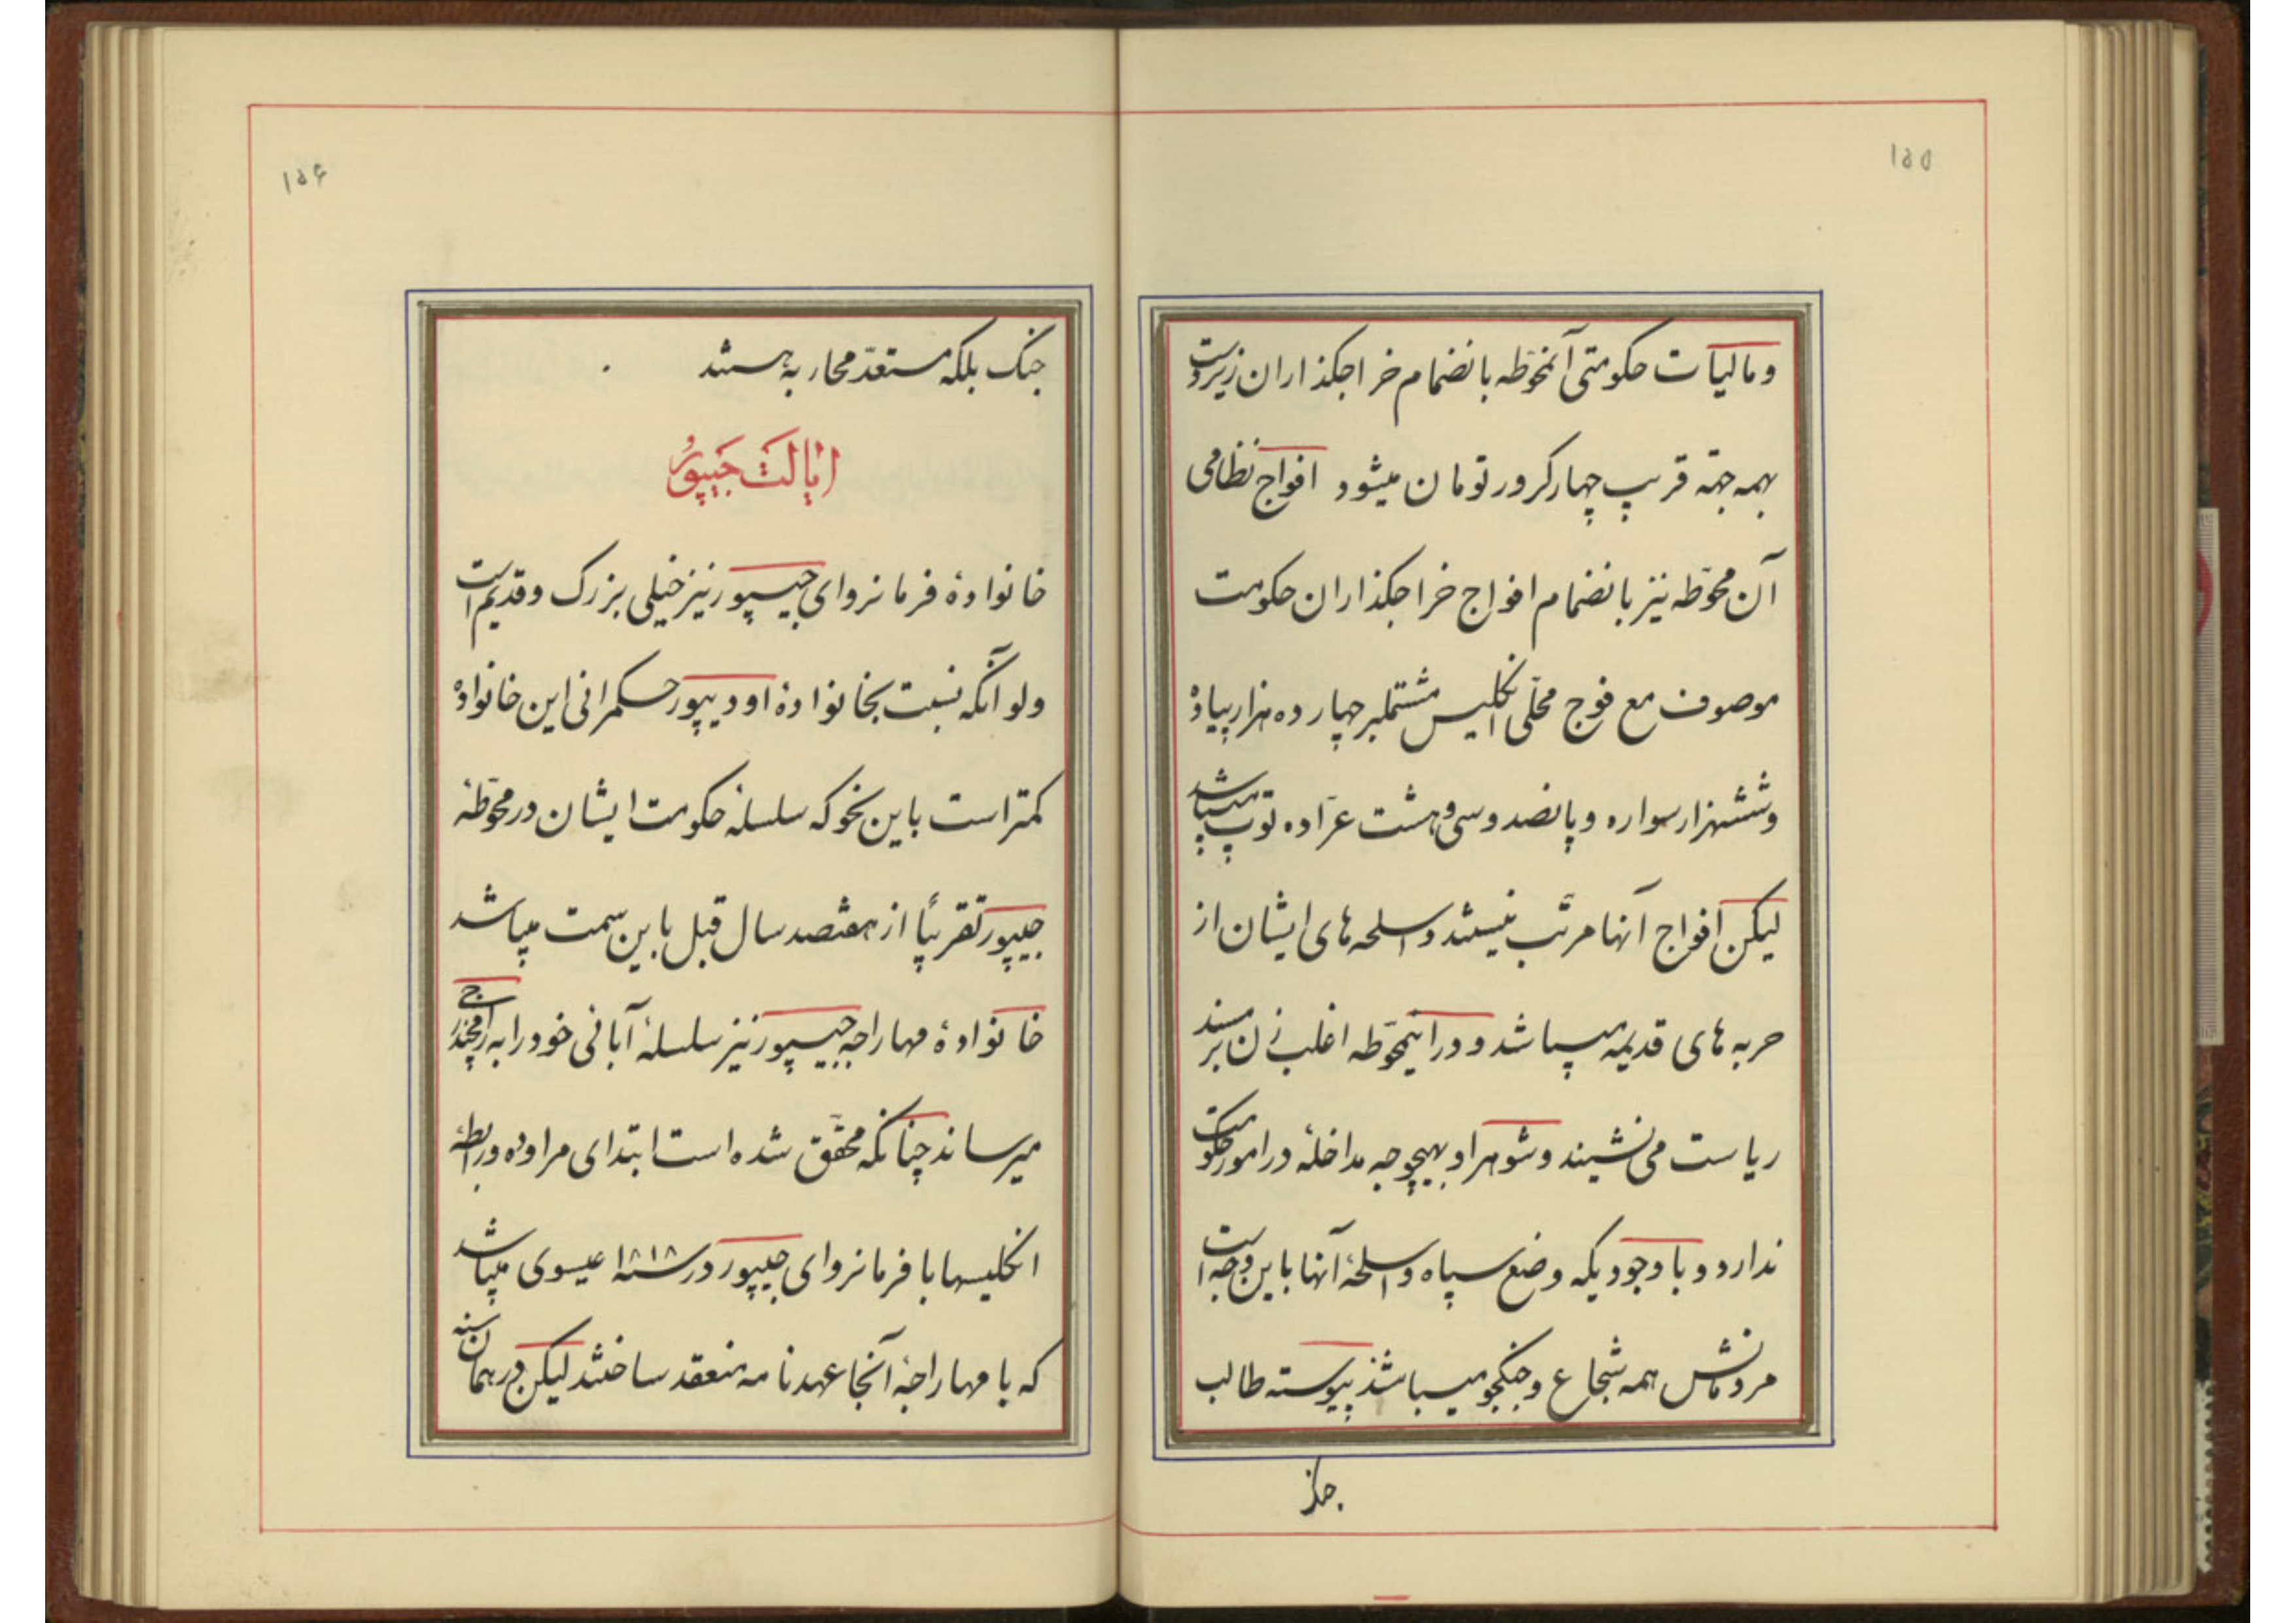 ۱۵۵
و مالیات حکومتی آنمحوّطه بانضمام خراجکذاران زیردست
بهمه جهة قریب چهار کرور تومان میشود افواج نظامی
آن محوّطه نیز بانضمام افواج خراجکذاران حکومت
موصوف مع فوج محلّی انکلیس مشتملبر چهارده هزار پیاده
و ششهزار سواره و پانصد و سی و هشت عرّاده توپ میباشد
لیکن افواج آنها مرتّب نیستند و اسلحه های ایشان از
حربه های قدیمه میباشد و در اینمحوّطه اغلب زن بر مسند
ریاست می نشیند و شوهر او بهیچوجه مداخلهٔ در امور حکومت
ندارد و با وجودیکه وضع سپاه و اسلحهٔ آنها باین وجه است
مردمانش همه شجاع و جنکجو میباشند پیوسته طالب
جنک
۱۵۶
جنک بلکه مستعدّ محاربه هستند
ایالت جیپور
خانوادهٔ فرمانروای جیپور نیز خیلی بزرک و قدیم است
ولو آنکه نسبت بخانوادهٔ اودیپور حکمرانی این خانواده
کمتر است باین نحو که سلسلهٔ حکومت ایشان در محوّطهٔ
جیپور تقریبًا از هفتصد سال قبل باین سمت میباشد
خانوادهٔ مهاراجه جیپور نیز سلسلهٔ آبائی خود را به راجه رامچندر
میرساند چنانکه محقّق شده است ابتدای مراوده و رابطهٔ
انکلیسها با فرمانروای جیپور در سنه ۱۸۱۸ عیسوی میباشد
که با مهاراجهٔ آنجا عهدنامه منعقد ساختند لیکن در همان سنه